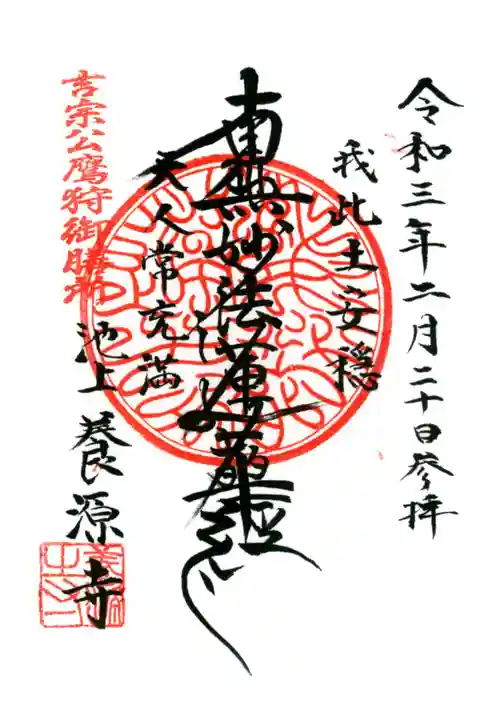 令和三年二月二十日参拝
我此土安穏
南無妙法蓮華経
天人常充満
吉宗公鷹狩御膳所
池上 養源寺